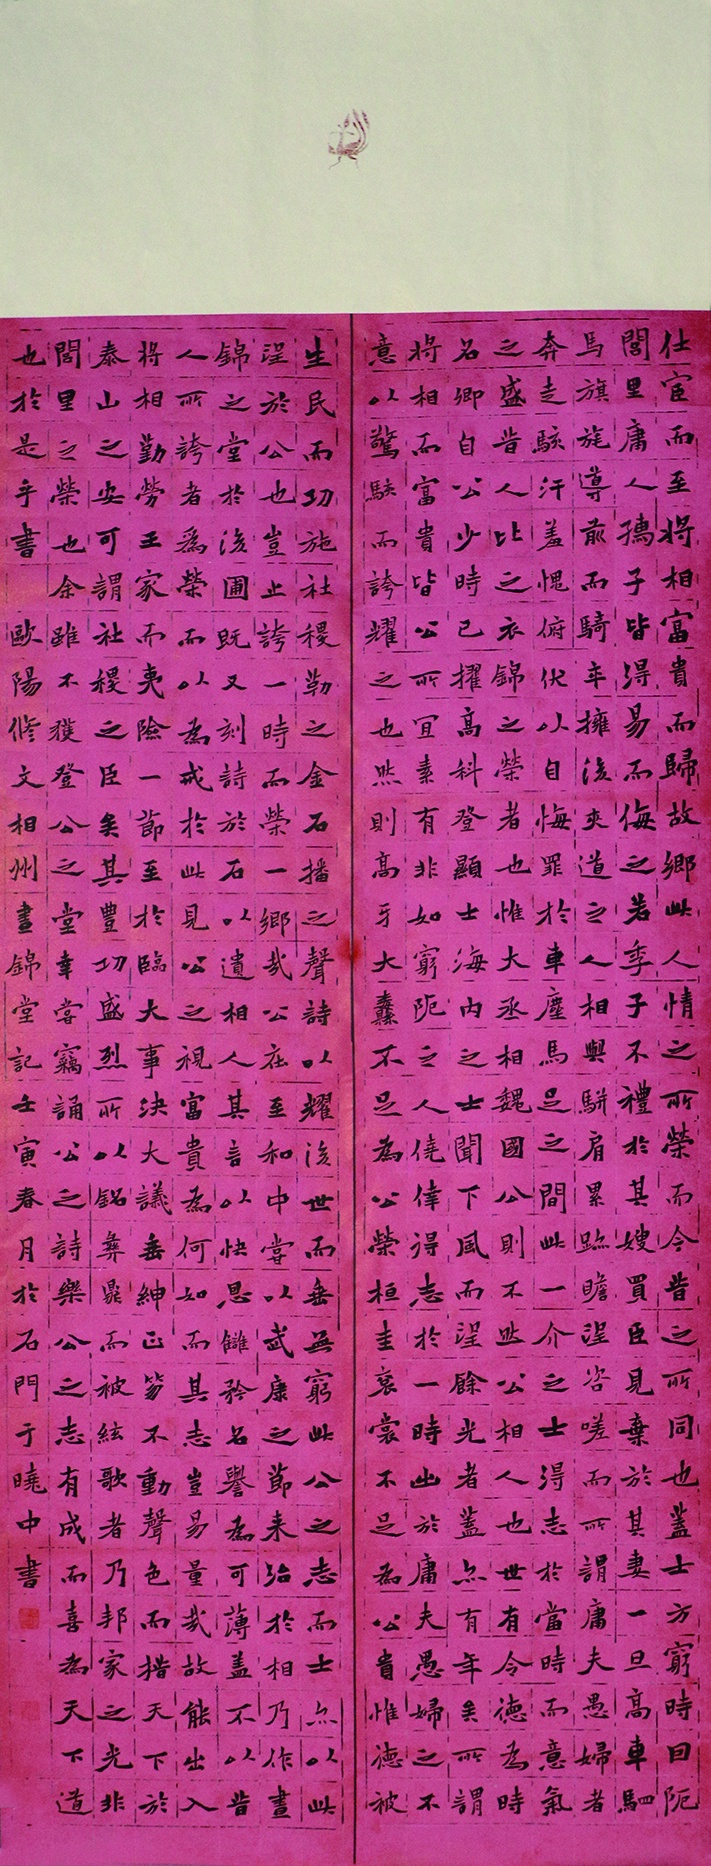 仕宦而至將相富貴而歸故鄉此人情之所榮而今昔之所同也蓋士方窮時曰阨
閭里庸人孺子皆得易而侮之若季子不禮於其嫂買臣見棄於其妻一旦高車駟
馬旗旄導前而騎卒擁後夾道之人相與駢肩累跡瞻望咨嗟而所謂庸夫愚婦者
奔走駭汗羞愧俯伏以自悔罪於車塵馬足之間此一介之士得志於當時而意氣
之盛昔人比之衣錦之榮者也惟大丞相魏國公則不然公相人也世有令德為時
名卿自公少時已擢高科登顯士海內之士聞下風而望餘光者蓋亦有年矣所謂
將相而富貴皆公所宜素有非如窮阨之人僥倖得志於一時出於庸夫愚婦之不
意以驚駭而誇耀之也然則高牙大纛不足為公榮桓圭袞裳不足為公貴惟德被
生民而功施社稷勒之金石播之聲詩以耀後世而垂無窮此公之志而士亦以此
望於公也豈止誇一時而榮一鄉哉公在至和中嘗以武康之節来治於相乃作晝
錦之堂於後圃既又刻詩於石以遺相人其言以快恩讎矜名譽為可薄蓋不以昔
人所誇者為榮而以為戒於此見公之視富貴為何如而其志豈易量哉故能出入
將相勤勞王家而夷險一節至於臨大事決大議垂紳正笏不動聲色而措天下於
泰山之安可謂社稷之臣矣其豐功盛烈所以銘彝鼎而被絃歌者乃邦家之光非
閭里之榮也余雖不獲登公之堂幸嘗竊誦公之詩樂公之志有成而喜為天下道
也於是乎書 歐陽修文相州晝錦堂記壬寅春月於石門于曉中書